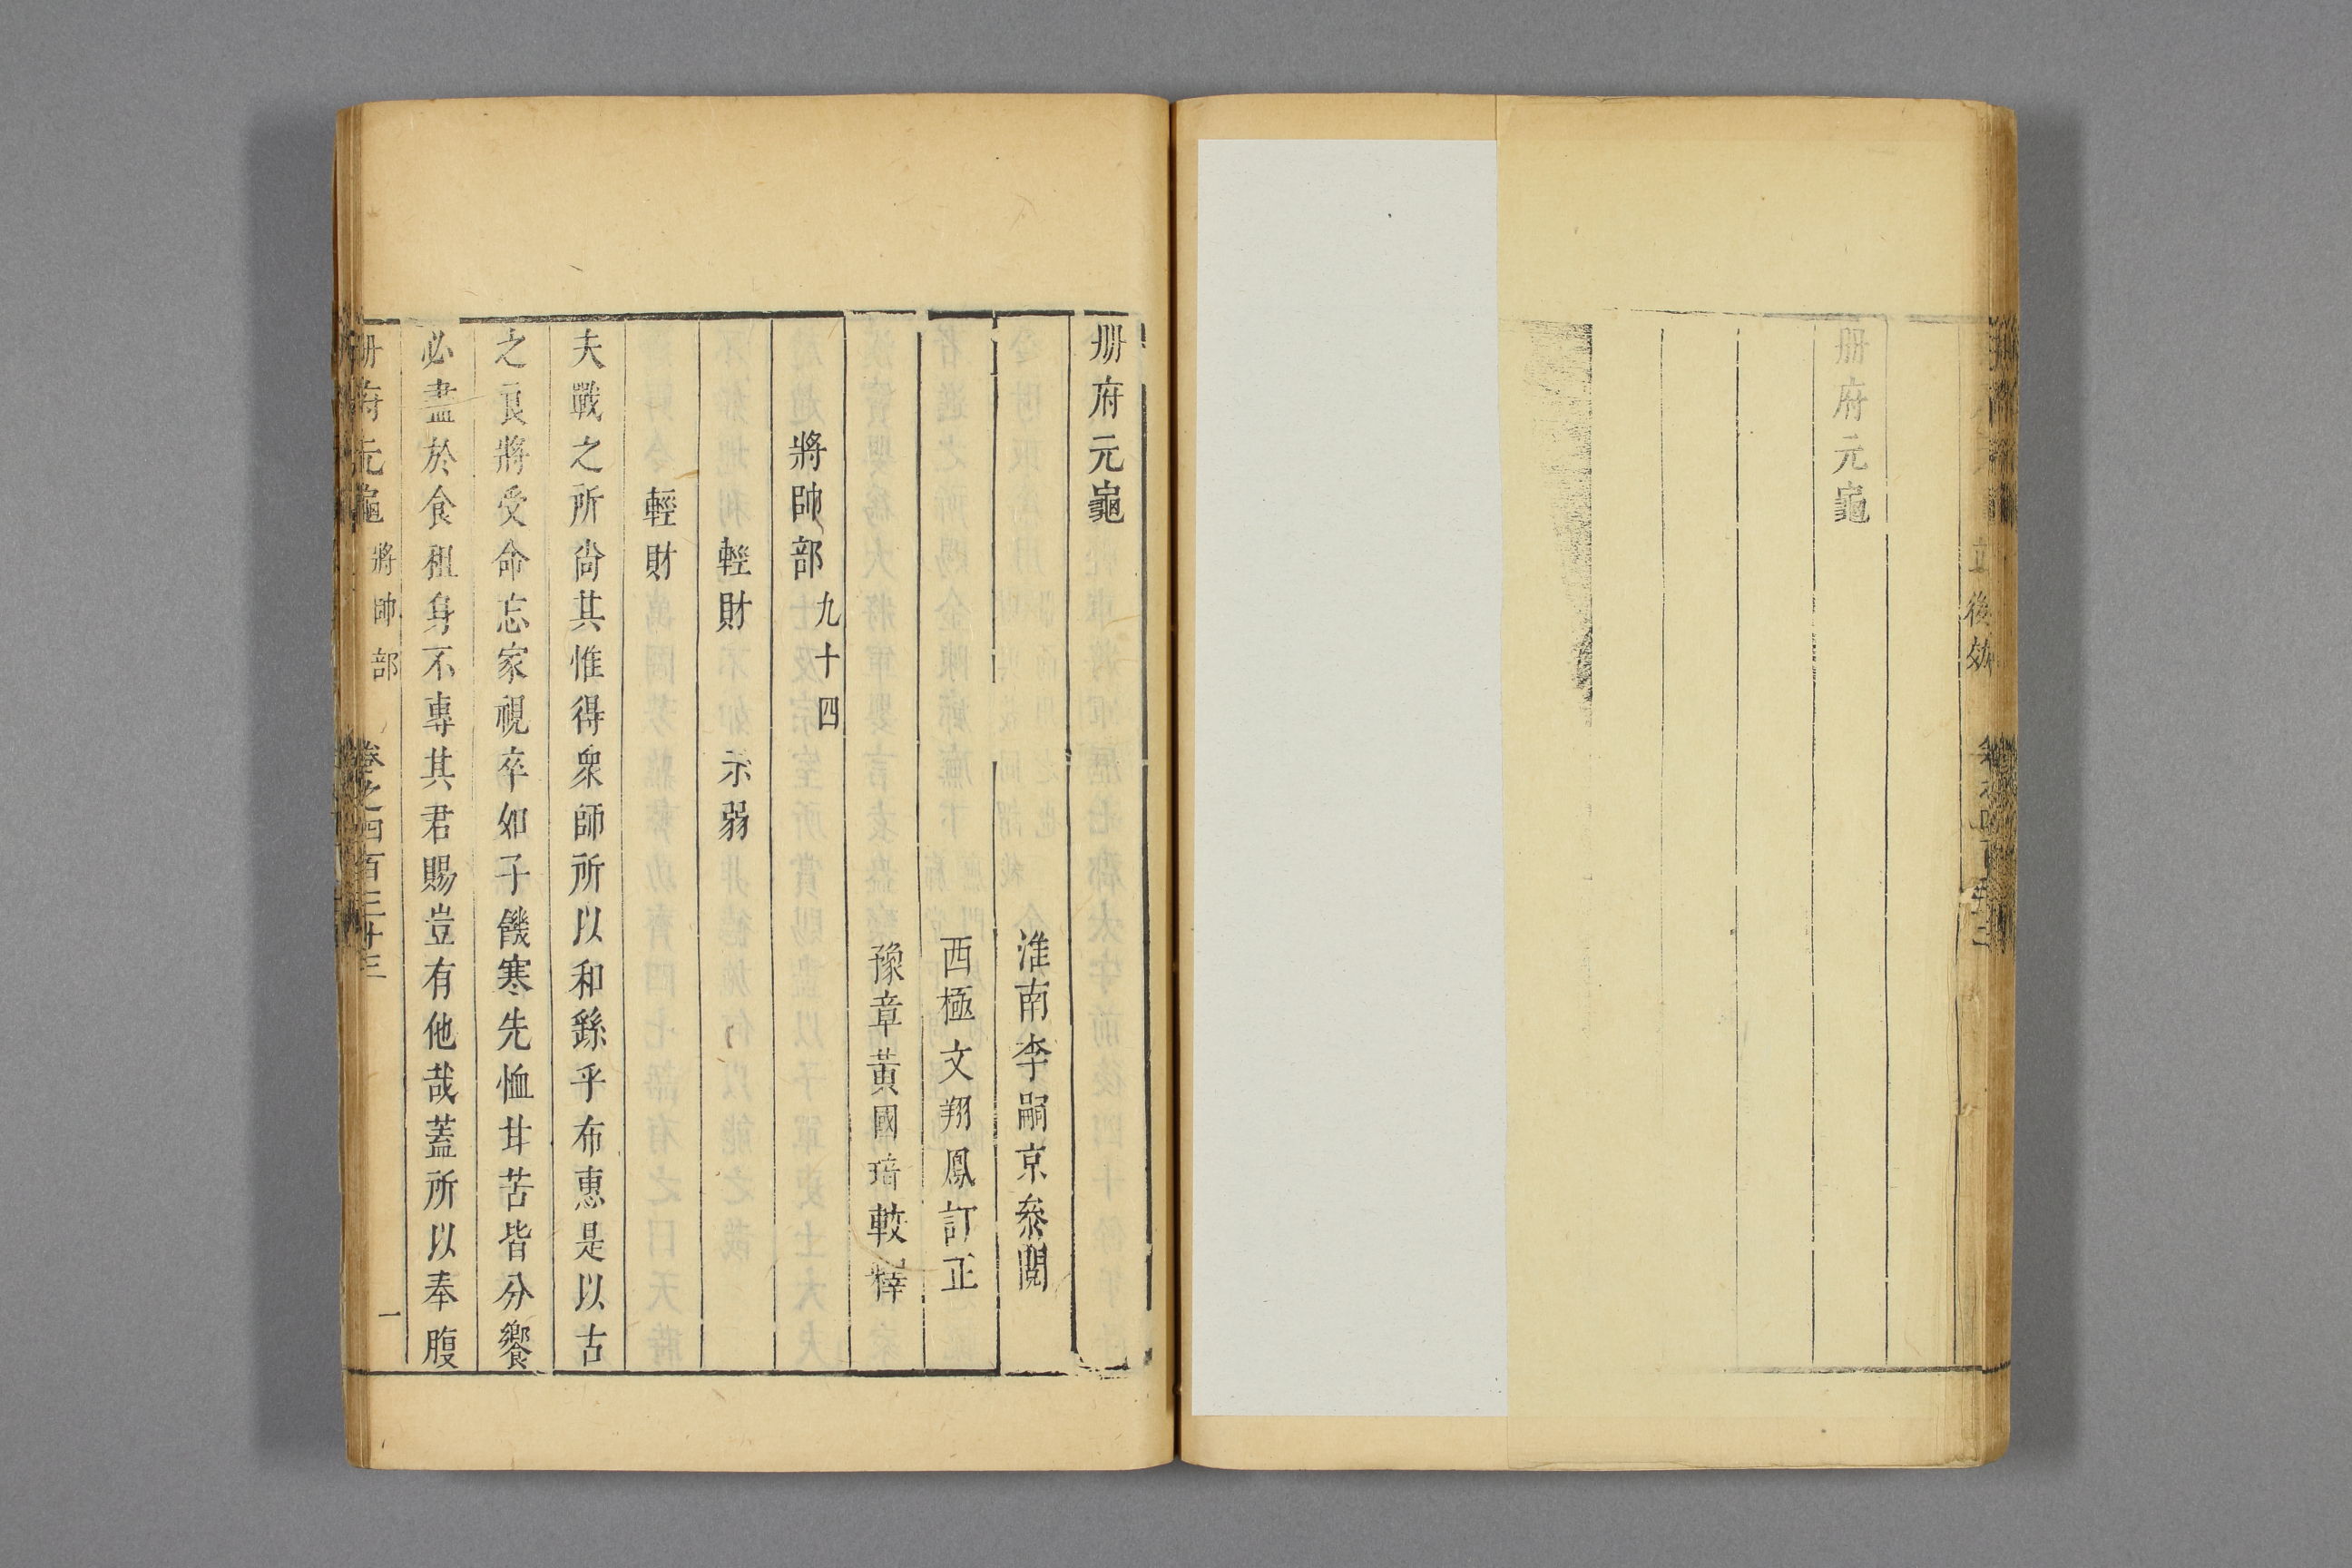 立後效
册府元龜
册府元龜
淮南李嗣京叅閱
西極文翔鳳訂正
豫章黃國琦較釋
將帥部九十四
輕財 示弱
輕財
夫戰之所尚其惟得衆師所以和繇乎布惠是以古
之良將受命忘家視卒如子饑寒先恤甘苦皆分饗
必盡於食租身不專其君賜豈有他哉蓋所以奉腹
册府元龜 將帥部 卷之四百三十三 一